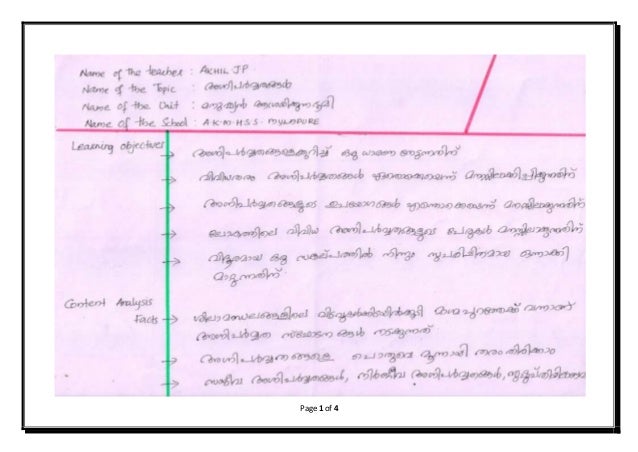 Name of the teacher : AKHIL JP
Name of the Topic : അഗ്നിപർവ്വതങ്ങൾ
Name of the Unit : മനുഷ്യൻ ഭൂമി
Name of the School : A.K.M.H.S.S. MYLAPURE
Learning objectives
→ അഗ്നിപർവ്വതങ്ങളെക്കുറിച്ച് ഒരു ധാരണ നേടുന്നതിന്
→ വിവിധതരം അഗ്നിപർവ്വതങ്ങൾ ഏതൊക്കെയെന്ന് മനസ്സിലാക്കിപ്പിക്കുന്നതിന്
→ അഗ്നിപർവ്വതങ്ങളുടെ ഉപയോഗങ്ങൾ എന്തൊക്കെയെന്ന് മനസ്സിലാക്കുന്നതിന്
→ ലോകത്തിലെ വിവിധ അഗ്നിപർവ്വതങ്ങളുടെ പേരുകൾ മനസ്സിലാക്കുന്നതിന്
→ വിദൂരമായ ഒരു സങ്കല്പത്തിൽ നിന്നും സുപരിചിതമായ ഒന്നാക്കി
മാറ്റുന്നതിന്
Content Analysis
Facts → ശിലാമണ്ഡലങ്ങളിലെ വിടവുകൾക്കിടയിൽക്കൂടി മാഗ്മ പുറത്തേക്ക് വന്നാണ്
അഗ്നിപർവ്വത സ്ഫോടനങ്ങൾ നടക്കുന്നത്
→ അഗ്നിപർവ്വതങ്ങളെ പൊതുവെ മൂന്നായി തരം തിരിക്കാം
→ സജീവ അഗ്നിപർവ്വതങ്ങൾ, നിർജ്ജീവ അഗ്നിപർവ്വതങ്ങൾ,
Page 1 of 4